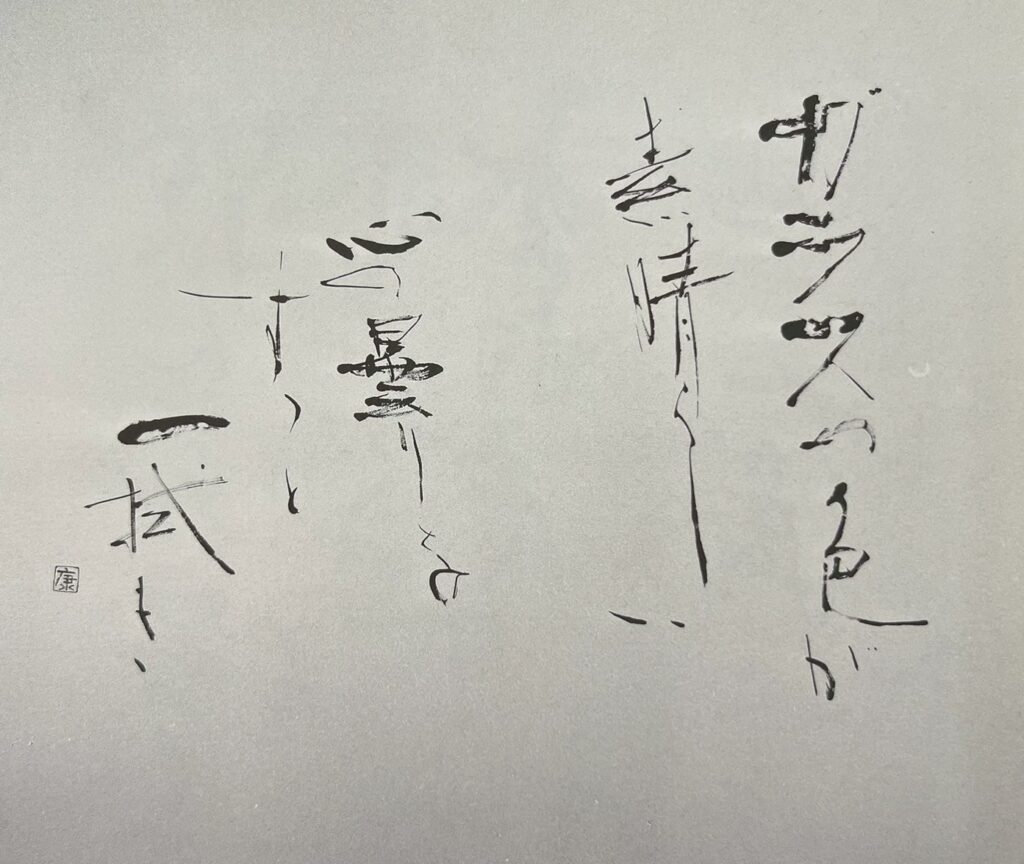 ガラスの色が
素晴らしい
心の曇りを
すっと
一拭き
康